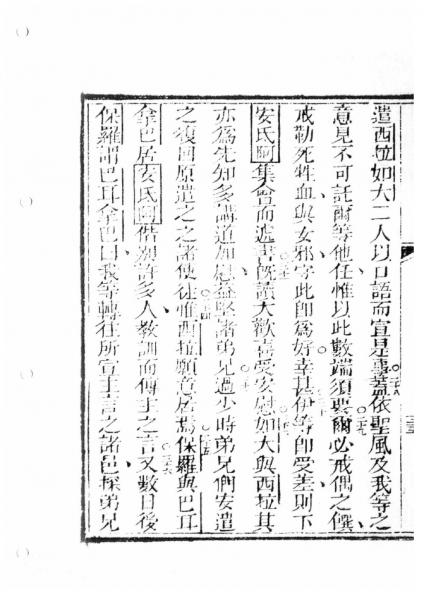 遣西拉如大二人以口語而宣是事蓋依聖風及我等之
意見不可託爾等他任惟以此數端須要爾必戒偶之僎
戒勒死牲血與女邪字此即為好幸甚伊等即受差則下
安氏阿集會而遞書既讀大歡喜受安慰如大與西拉其
亦為先知多講道加慰益堅諸弟兄過少時弟兄們安遣
之復回原遣之之諸使徒惟西拉願意居焉保羅與巴耳
拿巴居安氏阿偕別許多人教訓而傳主之言又數日後
保羅謂巴耳拿巴曰我等轉往所宣主言之諸邑探弟兄